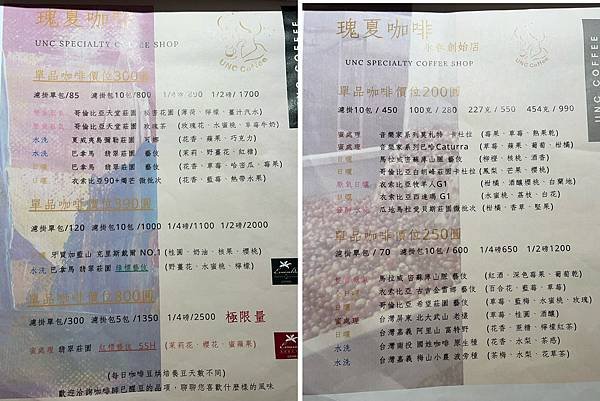 瑰夏咖啡
UNC SPECIALTY COFFEE SHOP
UNC Coffee
單品咖啡價位300圓
濾掛單包/85 濾掛10包/800 1/4磅/890 1/2磅/1700
哥倫比亞天堂莊園 (薄荷、檸檬、薑汁汽水)
哥倫比亞天堂莊園 玫瑰茶 (玫瑰花、水蜜桃、草莓牛奶)
水洗 夏威夷馬彌勒莊園 可娜 (花香、蘋果、巧克力)
水洗 巴拿馬 翡翠莊園 藝伎 (茉莉、野薑花、紅糖)
日曬 巴拿馬 翡翠莊園 藝伎 (花香、草莓、哈密瓜、莓果)
日曬 衣索比亞90+ 批次 (花香、藍莓、熱帶水果)
單品咖啡價位390圓
濾掛單包/120 濾掛10包/1000 1/4磅/1100 1/2磅/2000
日曬 牙買加藍山 克里斯戴爾 NO.1 (桂圓、奶油、核果、櫻桃)
水洗 巴拿馬 翡翠莊園 綠標藝伎 (野薑花、水蜜桃、檸檬)
單品咖啡價位800圓
濾掛單包/300 濾掛5包/1350 1/4磅/2500 極限量
蜜處理 翡翠莊園 紅標藝伎 55H (茉莉花、櫻花、蜜蘋果)
(每日咖啡豆烘培養豆天數不同)
歡迎洽詢咖啡師已醒豆的品項，聊聊您喜歡什麼樣的風味
瑰夏咖啡
永春創始店
UNC SPECIALTY COFFEE SHOP
UNC Coffee
UNC COFFEE
單品咖啡價位200圓
濾掛10包 / 450 100克 / 280 227克 / 550 454克 / 990
蜜處理 音樂家系列莫札特 卡杜拉 (莓果、草莓、熱果乾)
蜜處理 音樂家系列巴哈Caturra (草莓、蘋果、柑橘)
日曬 馬拉威密蘇庫山脈 藝伎 (柳橙、核桃、酒香)
日曬 哥倫比亞白胡峰莊園卡杜拉 (鳳梨、芒果、櫻桃)
厭氧日曬 衣索比亞牧羊人G1 (柑橘、酒釀櫻桃、白蘭地)
日曬 衣索比亞西達瑪 G1 (水蜜桃、荔枝、白花)
瓜地馬拉愛貝斯莊園微批次 (柑橘、香草、堅果)
單品咖啡價位250圓
濾掛單包 / 70 濾掛10包 / 600 1/4磅650 1/2磅1200
馬拉威 密蘇庫山脈 藝伎 (紅酒、深色莓果、葡萄乾)
日曬 衣索比亞 古吉金雷娜 藝伎 (百合花、藍莓、草莓)
日曬 哥倫比亞 希望莊園 藝伎 (草莓、藍梅、水蜜桃、玫瑰)
蜜處理 台灣屏東 北大武山 老欉 (草莓、桂圓、酒釀)
日曬 台灣嘉義 阿里山 富特野 (花香、蔗糖、檸檬紅茶)
水洗 台灣南投 國姓咖啡 原生種 (花香、水梨、茶感)
水洗 台灣嘉義 梅山小農 波旁種 (茶梅、水梨、花草茶)